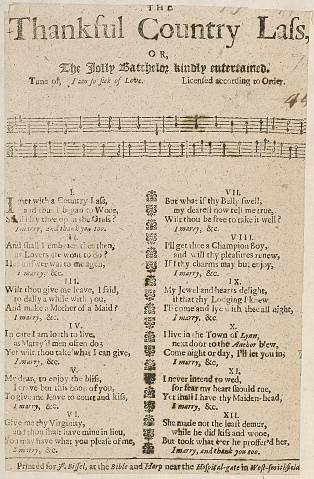 THE
Thankful Country Lass,
OR,
The Jolly Batchelor kindly entertained.
Tune of, I am so sick of Love. Licensed according to Order.
I.
I met with a Country Lass,
and thus I began to Wooe,
Shall I lay thee up in the Grass?
I marry, and thank you too.
II.
And shall I embrace thee then,
as Lovers are wont to do?
Her answer was to me agen,
I marry, &c.
III.
Wilt thou give me leave, I said,
to dally a while with you,
And make a Mother of a Maid?
I marry, &c.
IV.
In care I am loath to live,
as Marry'd men often do;
Yet wilt thou take what I can give,
I marry, &c.
V.
My dear, to enjoy the bliss,
I crave but this boon of you,
To give me leave to court and kiss,
I marry, &c.
VI.
Give me thy Virginity,
and thou shalt have mine in lieu,
You may have what you please of me,
I marry, &c.
VII.
But what if thy Belly swell,
my dearest now tell me true,
Wilt thou be free to take it well?
I marry, &c.
VIII.
I'll get thee a Champion Boy,
and will thy pleasures renew,
If thy charms may but enjoy,
I marry, &c.
IX.
My Jewel and hearts delight,
if that thy Lodging I knew
I'll come and lye with thee all night,
I marry, &c.
X.
I live in the Town of Lynn,
next door to the Anchor blew,
Come night or day, I'll let you in;
I marry, &c.
XI.
I never intend to wed,
for fear my heart should rue,
Yet shall I have thy Maiden-head,
I marry, &c.
XII.
She made not the least demur,
while he did kiss and wooe,
But took what e'er he proffer'd her,
I marry, and thank you too.
Printed for J. Bissel, at the Bible and Harp near the Hospital-gate in West-smithfield